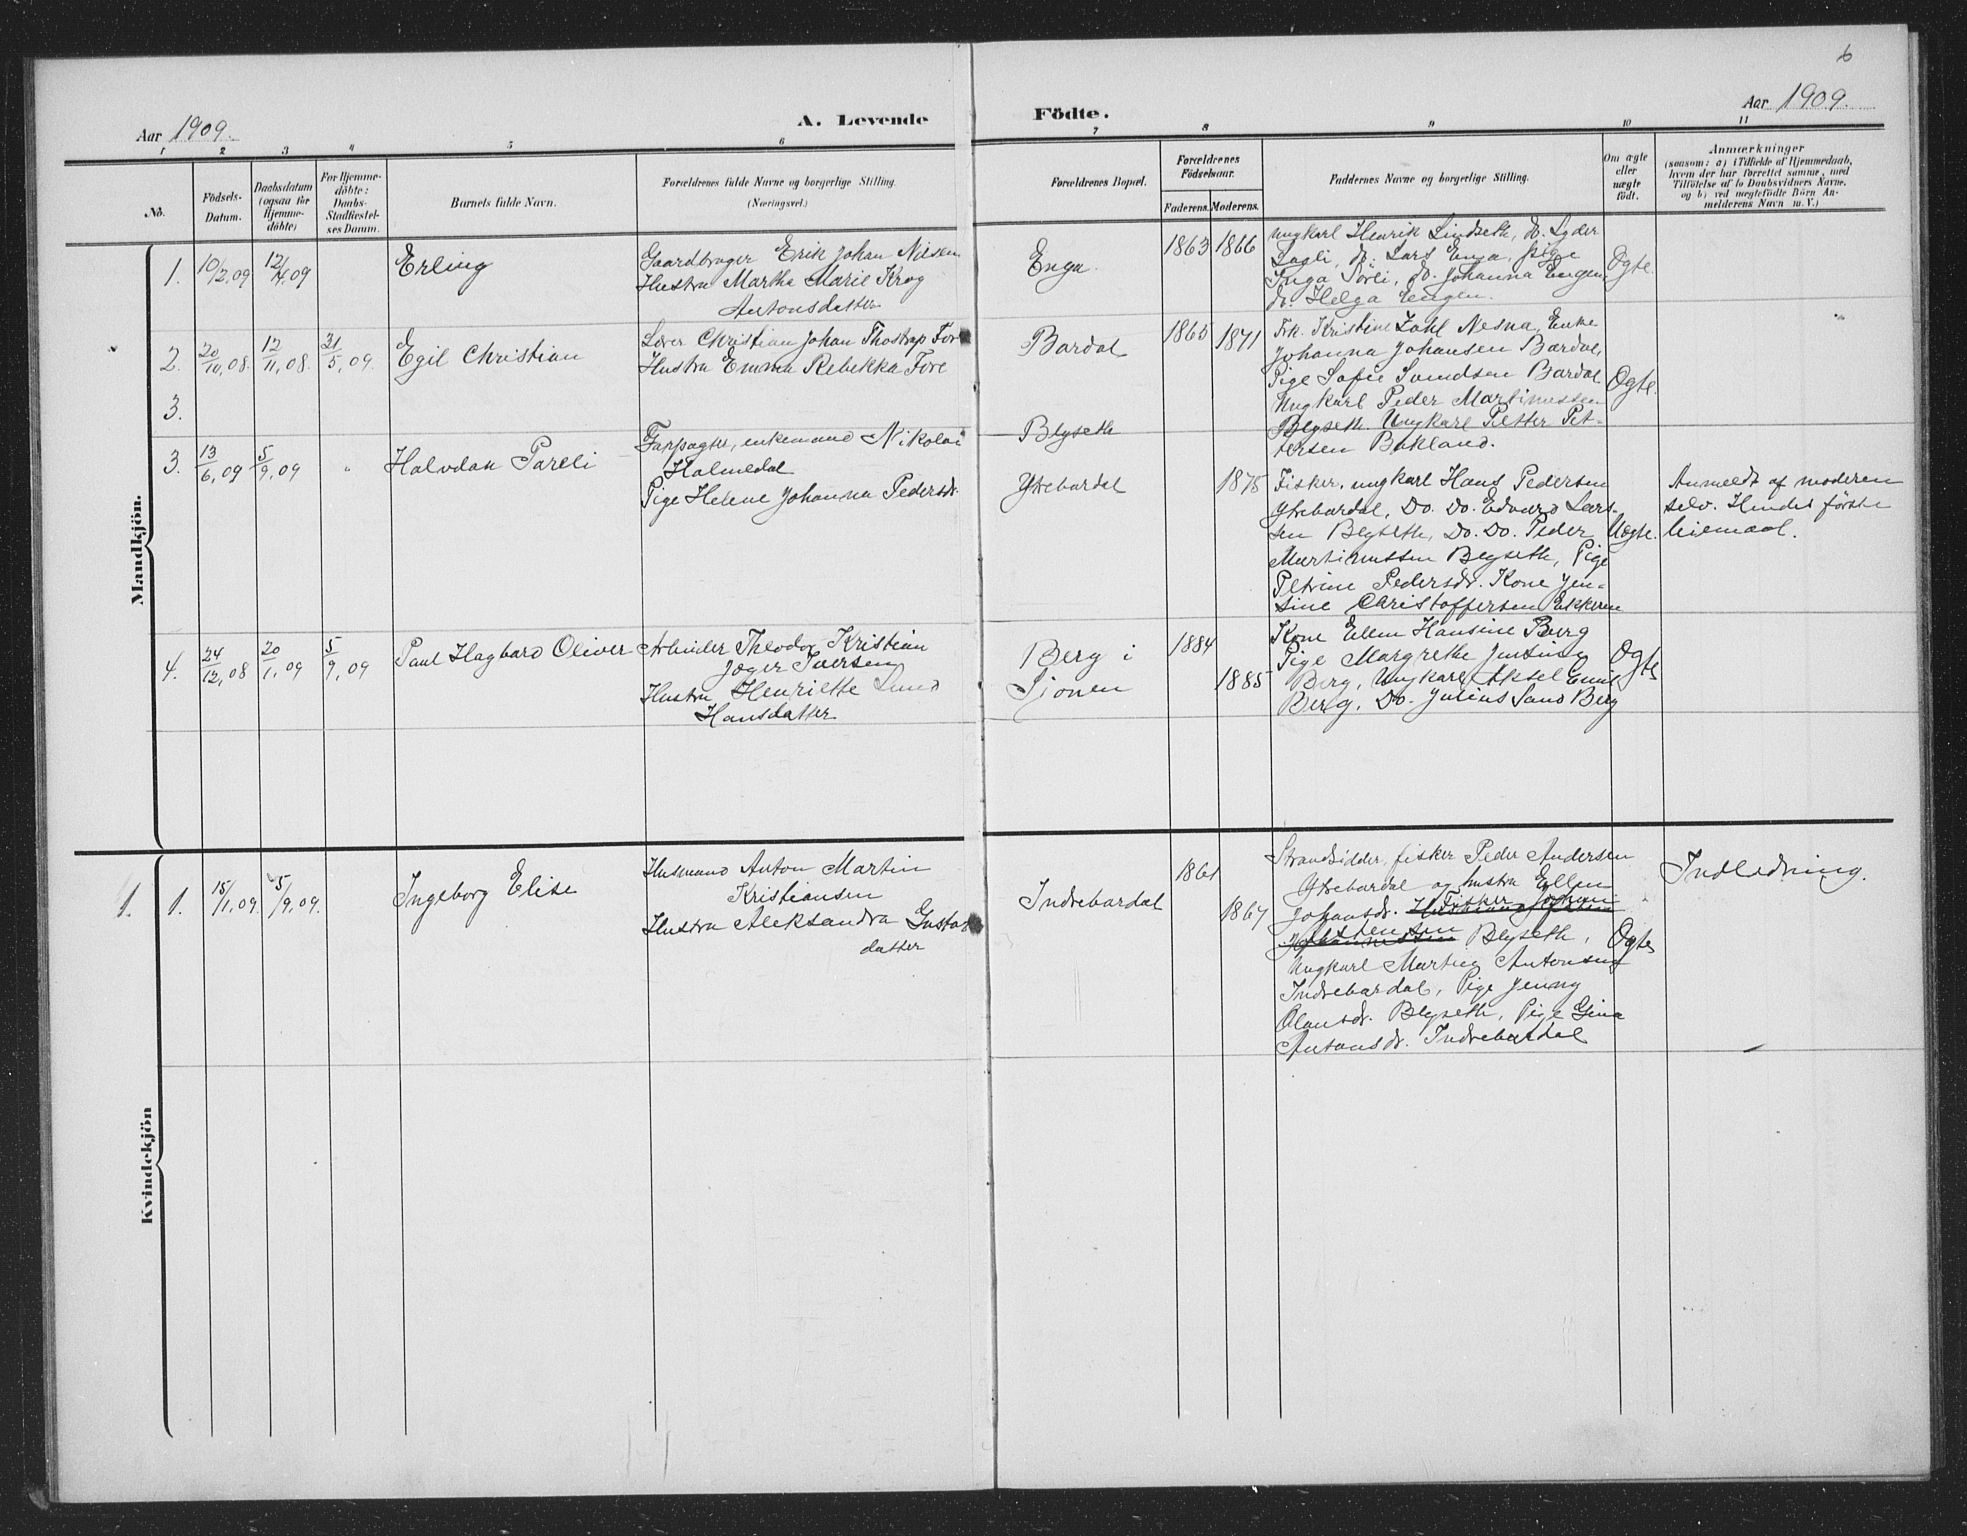 6
Aar 1909.
A. Levende
Födte.
Aar 1909.
1 2 3 4 5 6 7 8 9 10 11
No.
Födsels-
Datum.
Daabsdatum
(ogsaa for
Hjemme-
döbte)
For Hjemme-
döbte:
Daabs-
Stadfæstel-
ses Datum.
Barnets fulde Navn.
Forældrenes fulde Navne og borgerlige Stilling.
(Næringsvei.)
Forældrenes Bopæl.
Forældrenes
Födselsaar.
Faderens. Moderens.
Faddernes Navne og borgerlige Stilling.
Om ægte
eller
uægte
födt.
Anmærkninger
(saasom: a) i Tilfælde af Hjemmedaab,
hvem der har forrettet samme, med
Tilföielse af to Daabsvidners Navne,
og b) ved uægtefödte Börn An-
melderens Navn m. V.)
Mandkjön.
1. 10/2,09 12/4,09 Erling
Gaardbruger Erik Johan Nilsen
Hustru Martha Marie Krog
Antonsdatter
Enga. 1863 1866
Ungkarl Henrik Lindseth, do. Lyder
Lagli, do. Lars Enga, pige
Inga Sörli, do. Johanna Engen,
do. Helga Engen.
Ægte.
2. 20/10,08. 12/11,08. 31/5,09. Egil Christian
Lærer Christian Johan Thostrup Fore
Hustru Emma Rebekka Fore
Bardal 1865 1871
Frk. Kristine Zahl Nesna, Enke
Johanna Johansen Bardal,
Pige Sofie Svendsen Bardal
Ungkarl Peder Martinussen
Blyseth Ungkarl Petter Pet-
tersen Bakland.
Ægte.
3.
3. 13/6,09 5/9,09 " Halvdan Pareli
Farpagter, enkemand Nikolai
Halmedal
Pige Helene Johanna Pedersdr.
Blyseth
Ytrebardal 1875
Fisker, ungkarl Hans Pedersen
Ytrebardal, Do. Do. Edvard Lars-
sen Blyseth, Do. Do. Peder
Martinussen Blyseth, Pige
Petrine Pedersdr. Kone Jen-
sine Christoffersen Ekkeren
Uægte.
Anmeldt af moderen
selv. Hendes første
leiemaal.
4. 24/12,08 20/1,09 5/9,09 Paul Hagbard Oliver
Arbeider Theodor Kristian
Jæger Iversen
Hustru Henriette Lund
Hansdatter
Berg i
Sjonen
1884
1885
Kone Ellen Hansine Berg
Pige Margrethe Jensine
Berg, Ungkarl Aksel Emil
Berg, Do. Julius Sand Berg
Ægte
Kvindekjön
1. 1. 15/1,09. 5/9,09. Ingeborg Elise
Husmand Anton Martin
Kristiansen
Hustru Aleksandra Gustav
datter
Indrebardal
1861
1867
Strandsidder, fisker Peder Andersen
Ytrebardal og hustru Ellen
Johansdr. Fisker Johan
Blyseth,
Ungkarl Martin Antonsen
Indrebardal, Pige Jenny
Olausdr. Blyseth, Pige Gina
Antonsdr. Indrebardal
Ægte
Indledning.